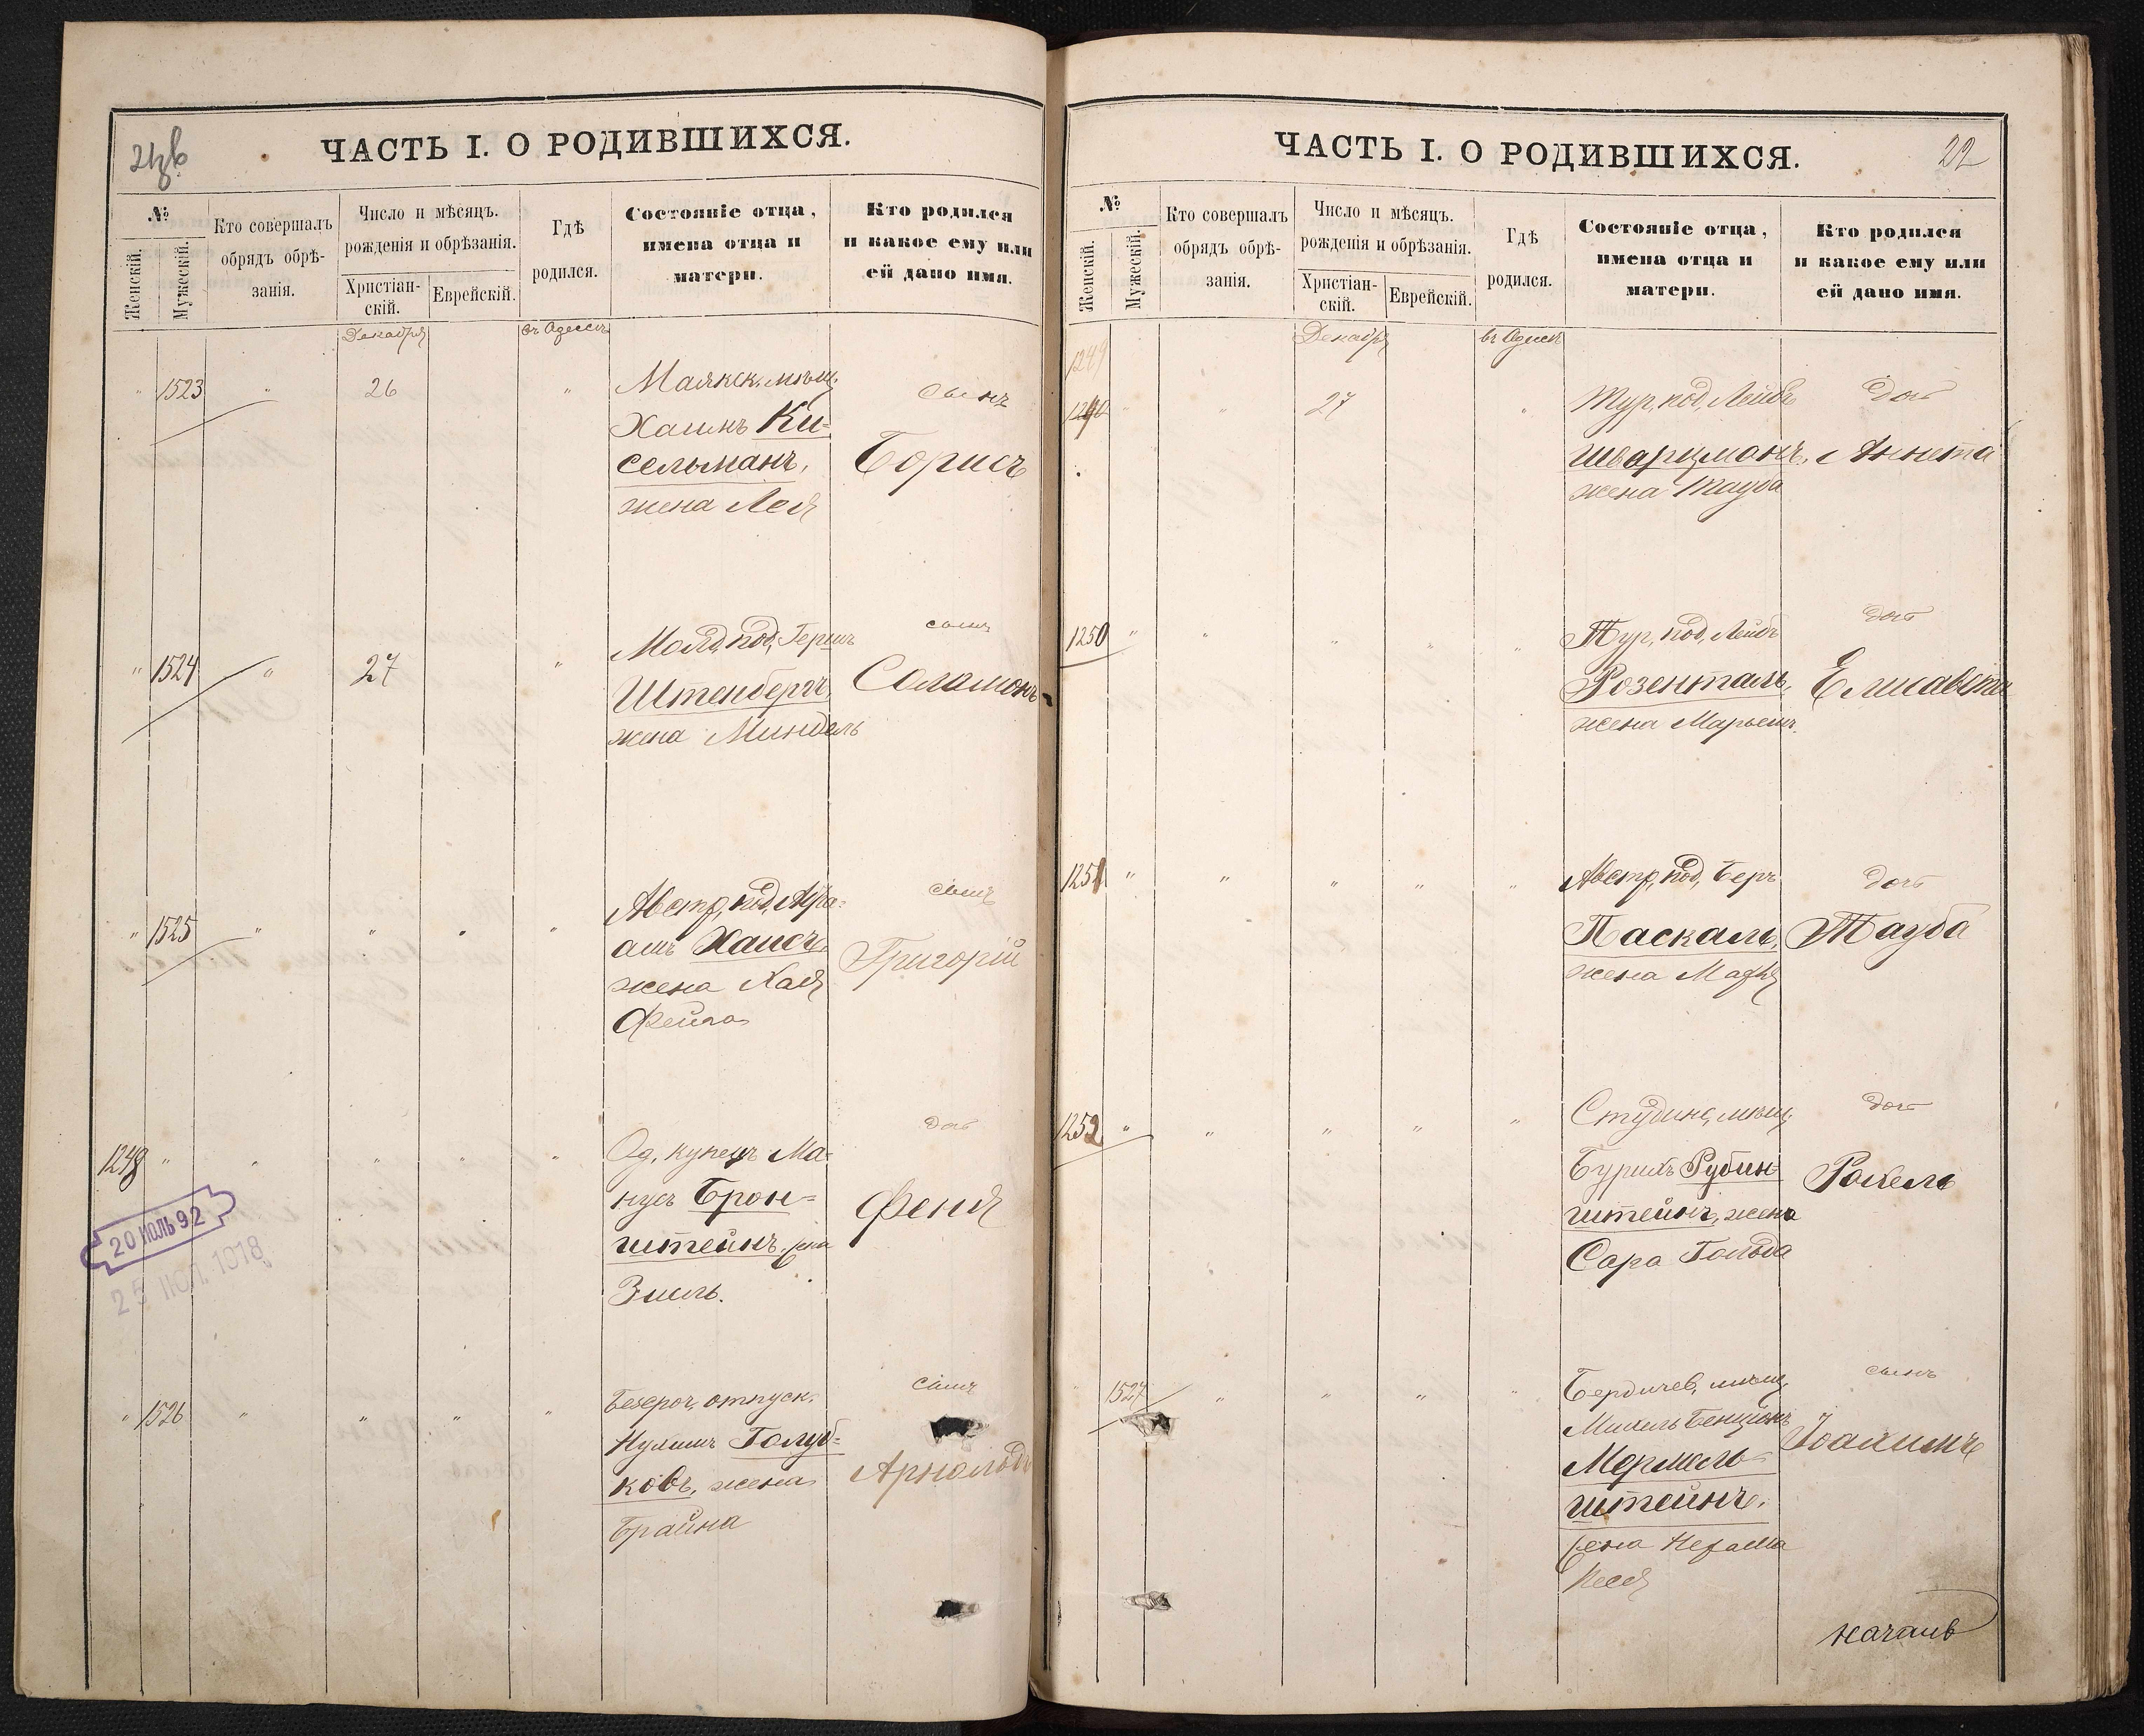 ЧАСТЬ I. О РОДИВШИХСЯ.
№
Женскій.
Мужескій.
Кто совершалъ
обрядъ обрѣ-
занія.
Число и мѣсяцъ.
рожденія и обрѣзанія.
Христіан-
скій.
Еврейскій.
Гдѣ
родился.
Состояніе отца,
имена отца и
матери.
Кто родился
и какое ему или
ей дано имя.
Декабря
въ Одессѣ
" 1523 " 26 "
Маякск. мѣщ.
Хаимъ Ки-
сельманъ,
жена Лея
сынъ
Борисъ
" 1524 " 27 "
Молд. под. Гершъ
Штенбергъ,
жена Миндель
сынъ
Соломонъ
" 1525 " " " "
Австр. под. Абра-
амъ Хаисъ,
жена Хая
Фейга
сынъ
Григорій
1248 " " " " "
Од. купецъ Ма-
нусъ Брон-
штейнъ, жена
Зисль.
дочь
Феня
20 ІЮЛЬ 92
25 ІЮЛ. 1918
" 1526 " " " "
отпуск.
Голуб-
ковъ, жена
Брайна
сынъ
Арнольдъ
ЧАСТЬ I. О РОДИВШИХСЯ.
22
№
Женскій.
Мужескій.
Кто совершалъ
обрядъ обрѣ-
занія.
Число и мѣсяцъ.
рожденія и обрѣзанія.
Христіан-
скій.
Еврейскій.
Гдѣ
родился.
Состояніе отца,
имена отца и
матери.
Кто родился
и какое ему или
ей дано имя.
Декабря
въ Одессѣ
1249
" " 27 "
Тур. под. Лейбъ
Шварцманъ,
жена Тауба
дочь
Аннета
1250 " " " " "
Тур. под. Лейбъ
Розенталь,
жена Марьемъ
дочь
Елисавета
1251 " " " " "
Австр. под. Беръ
Паскаль,
жена Марья
дочь
Тауба
1252 " " " " "
мѣщ.
Бурихъ Рубин-
штейнъ, жена
Сара Гольда
дочь
Рохель
1527 " " " "
Бердичев. мѣщ.
Михель Бенціонъ
Мермель-
штейнъ,
жена Нехама
Песя
сынъ
Іоахимъ